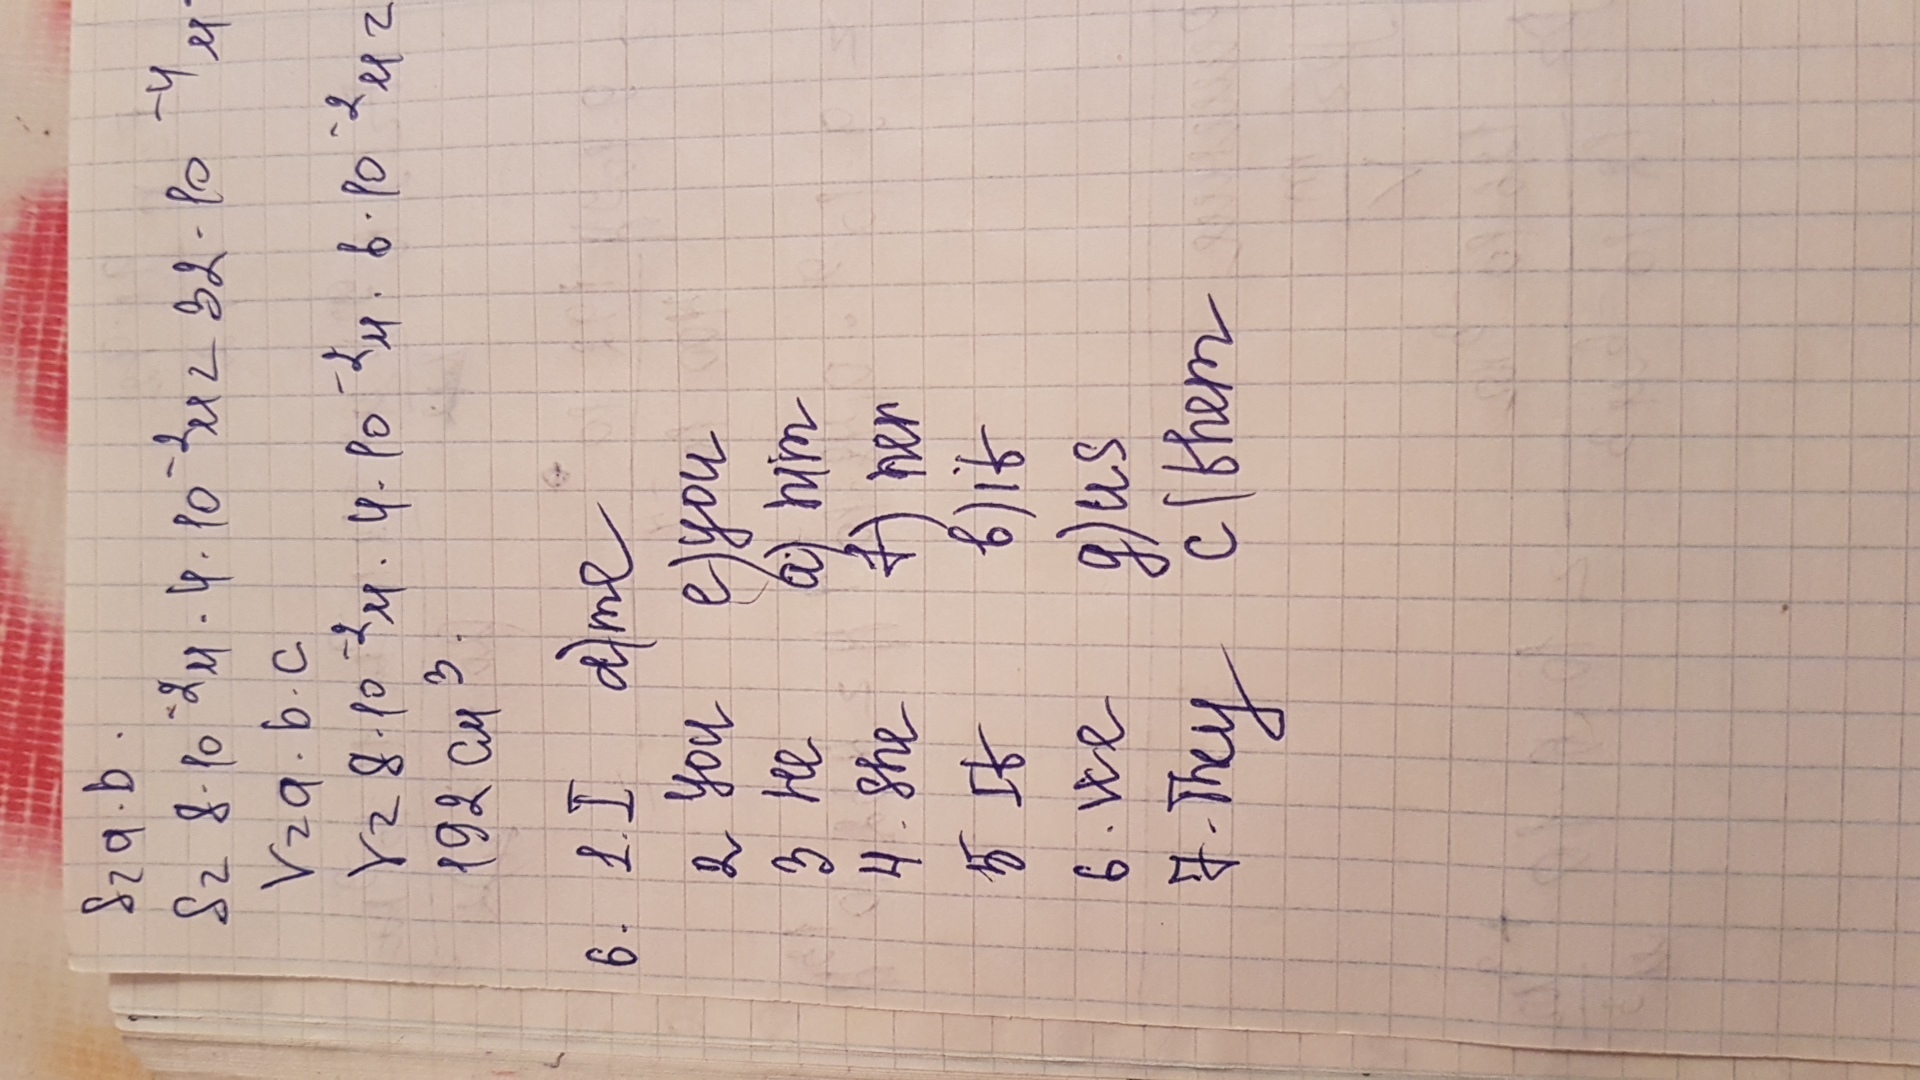 S = a · b.
S = 8 · 10⁻²м · 4 · 10⁻²м = 32 · 10⁻⁴м
V = a · b · c
V = 8 · 10⁻²м · 4 · 10⁻²м · 6 · 10⁻²м =
192 см³.
6. 1. I d) me
2 you e) you
3 he a) him
4. she f) her
5 It b) it
6. we g) us
7. They c) them